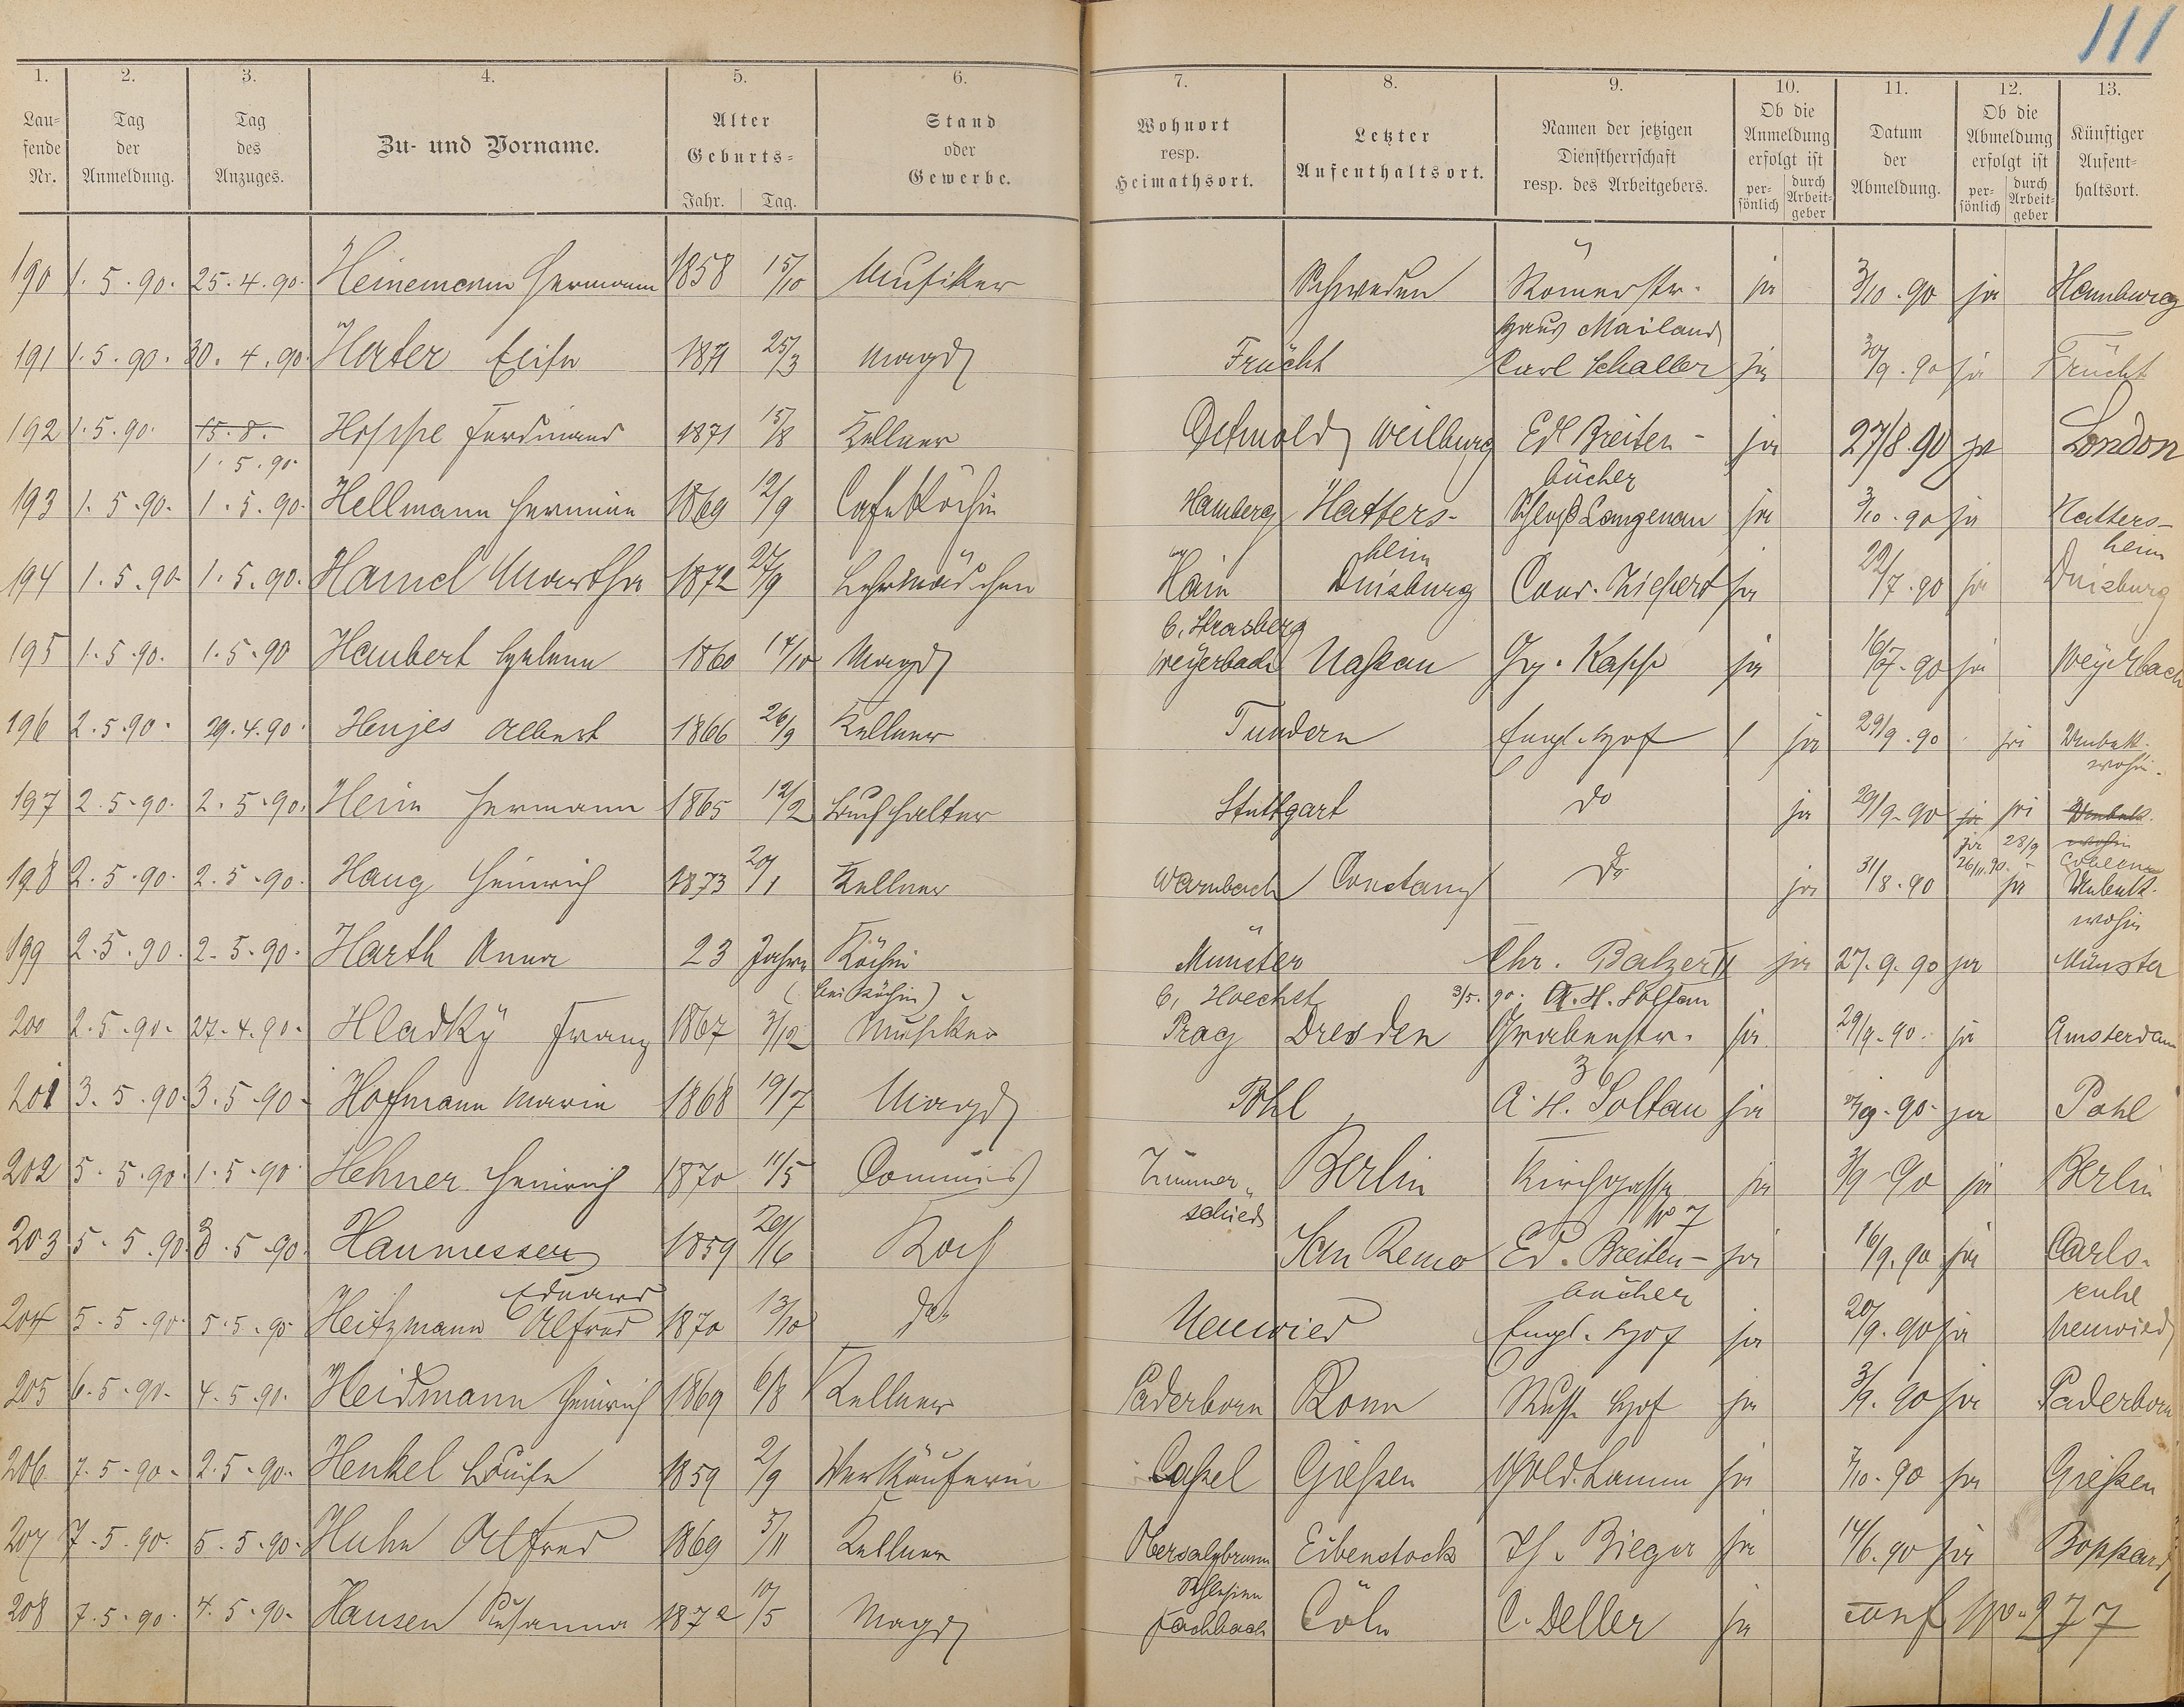 111
1. 2. 3. 4. 5. 6. 7. 8. 9. 10. 11. 12. 13.
Laufende Nr. Tag der Anmeldung. Tag des Anzuges. Zu- und Vorname. Alter Geburts- Jahr. Tag. Stand oder Gewerbe. Wohnort resp. Heimathsort. Letzter Aufenthaltsort. Namen der jetzigen Dienstherrschaft resp. des Arbeitgebers. Ob die Anmeldung erfolgt ist persönlich durch Arbeitgeber Datum der Abmeldung. Ob die Abmeldung erfolgt ist persönlich durch Arbeitgeber Künftiger Aufenthaltsort.
190 1.5.90. 25.4.90. Heinemann Hermann 1858 15/10 Musiker Schweden Römerstr. ja 3/10.90 ja Hamburg
Haus Mailand
191 1.5.90. 30.4.90. Härter Elise 1871 25/3 Magd Frücht Carl Schaller ja 30/9.90 ja Frücht
192 1.5.90. 15.8. Hoppe Ferdinand 1871 15/8 Kellner Detmold Weilburg Ed. Breiten- ja 27/8.90 ja London
1.5.90. bücher
193 1.5.90. 1.5.90. Hellmann Hermine 1869 12/9 Cafeköchin Hamberg Hatters- Schloß Langenau ja 3/10.90 ja Hatters-
heim heim
194 1.5.90. 1.5.90. Hamel Martha 1872 27/9 Lehrmädchen Hain Duisburg Conr. Ziepert ja 22/7.90 ja Duisburg
b. Strasberg
195 1.5.90. 1.5.90 Haubert Helene 1860 14/10 Magd Weyerbach Naßau Gg. Kapp ja 16/7.90 ja Weyerbach
196 2.5.90. 29.4.90. Henjes Albert 1866 26/9 Kellner Tundern Engl. Hof ja 29/9.90 ja Unbek.
wohin.
197 2.5.90. 2.5.90. Heim Hermann 1865 12/2 Buchhalter Stuttgart do ja 29/9.90 ja ja Unbek.
ja 28/9 wohin
26/11.90. Coblenz
198 2.5.90. 2.5.90. Haug Heinrich 1873 20/1 Kellner Warmbach Constanz do ja 31/8.90 ja Unbek.
wohin
199 2.5.90. 2.5.90. Harth Anna 23 Jahre Köchin Münster Chr. Balzer II ja 27.9.90 ja Münster
(Beiköchin) b. Hoechst 3/5.90. A. H. Soltau
200 2.5.90. 27.4.90. Hladky Franz 1867 3/12 Musiker Prag Dresden Grabenstr. ja 29/9.90. ja Amsterdam
3
201 3.5.90. 3.5.90. Hoffmann Marie 1868 19/7 Magd Pohl A. H. Soltau ja .90. ja Pohl
202 5.5.90. 1.5.90. Hehner Heinrich 1870 11/5 Commis Zimmer- Berlin Kirchgasse ja 3/9 90 ja Berlin
schied No 7
203 5.5.90. 3.5.90. Haumesser 1859 20/6 Koch San Remo Ed. Breiten- ja 16/9.90 ja Carls-
Eduard bücher ruhe
204 5.5.90. 5.5.90. Heitzmann Alfred 1870 13/10 do Neuwied Engl. Hof ja 20/9.90 ja Neuwied
205 6.5.90. 4.5.90. Heidmann Heinrich 1869 6/8 Kellner Paderborn Bonn Russ. Hof ja 3/9.90 ja Paderborn
206 7.5.90. 2.5.90. Henkel Louise 1859 2/9 Verkäuferin Caßel Gießen Gold. Lamm ja 7/10.90 ja Gießen
207 7.5.90. 5.5.90. Huhn Alfred 1869 5/11 Kellner Obersalzbrunn Eibenstock Th. Bieger ja 14/6.90 ja Boppard
Schlesien
208 7.5.90. 4.5.90. Hausen Susanna 1872 10/5 Magd Fachbach Cöln C. Deller ja conf No. 277